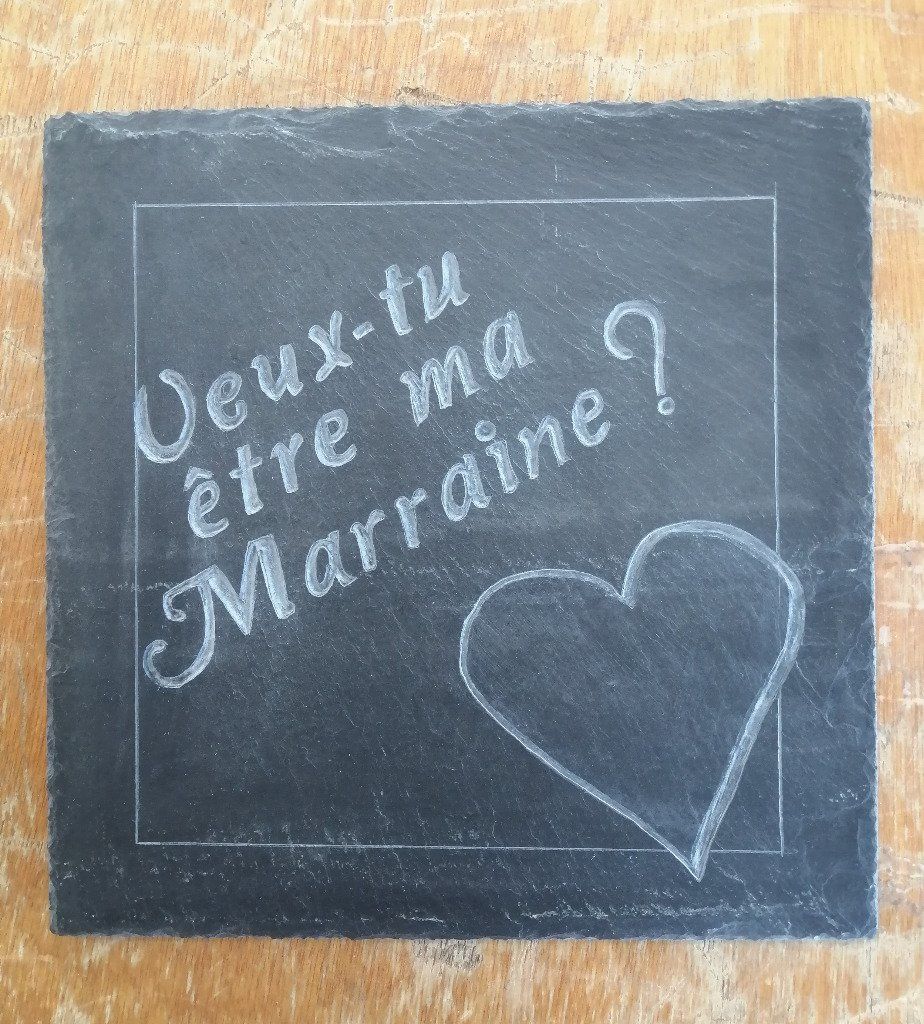 Veux-tu
être ma
Marraine ?